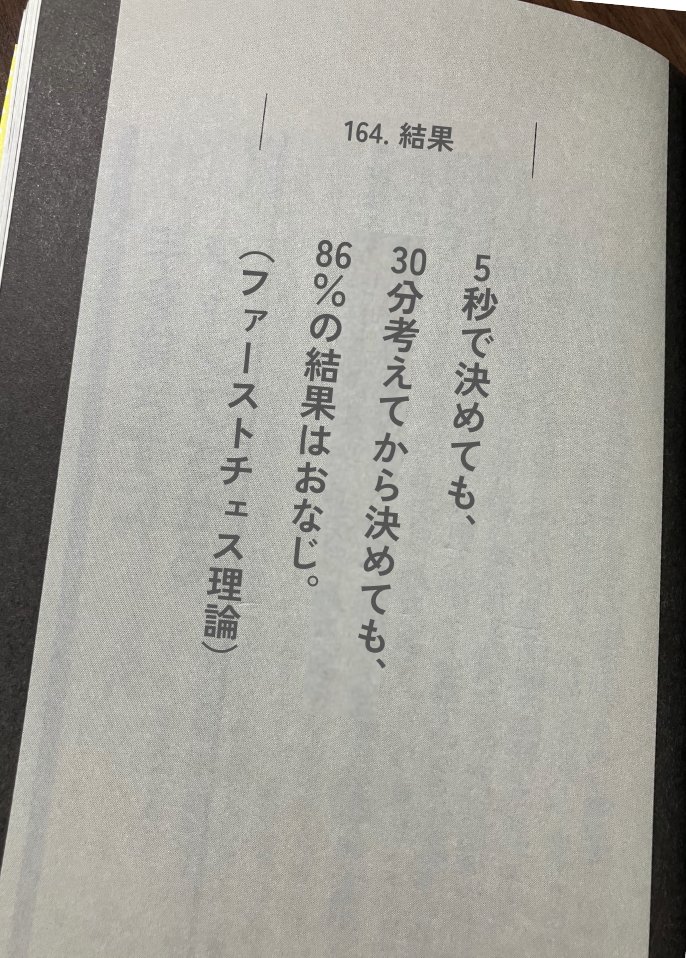 164. 結果
5秒で決めても、
30分考えてから決めても、
86%の結果はおなじ。
（ファーストチェス理論）